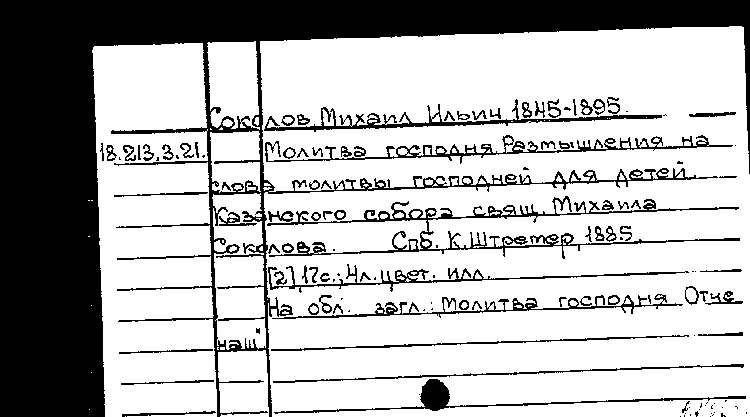 Соколов, Михаил Ильич, 1845-1895.
18.213.3.21. Молитва господня. Размышления на
слова молитвы господней для детей
Казанского собора свящ. Михаила
Соколова. Спб., К. Штремер, 1885.
[2],17с.; 4л. цвет. илл.
На обл. загл.: Молитва господня "Отче
наш"